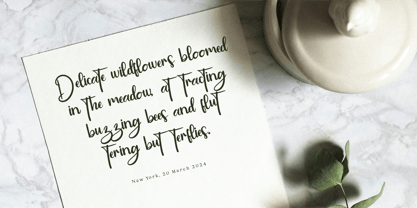 Delicate wildflowers bloomed
in the meadow, at tracting
buzzing bees and flut
tering but terflies.
New York, 20 March 2024